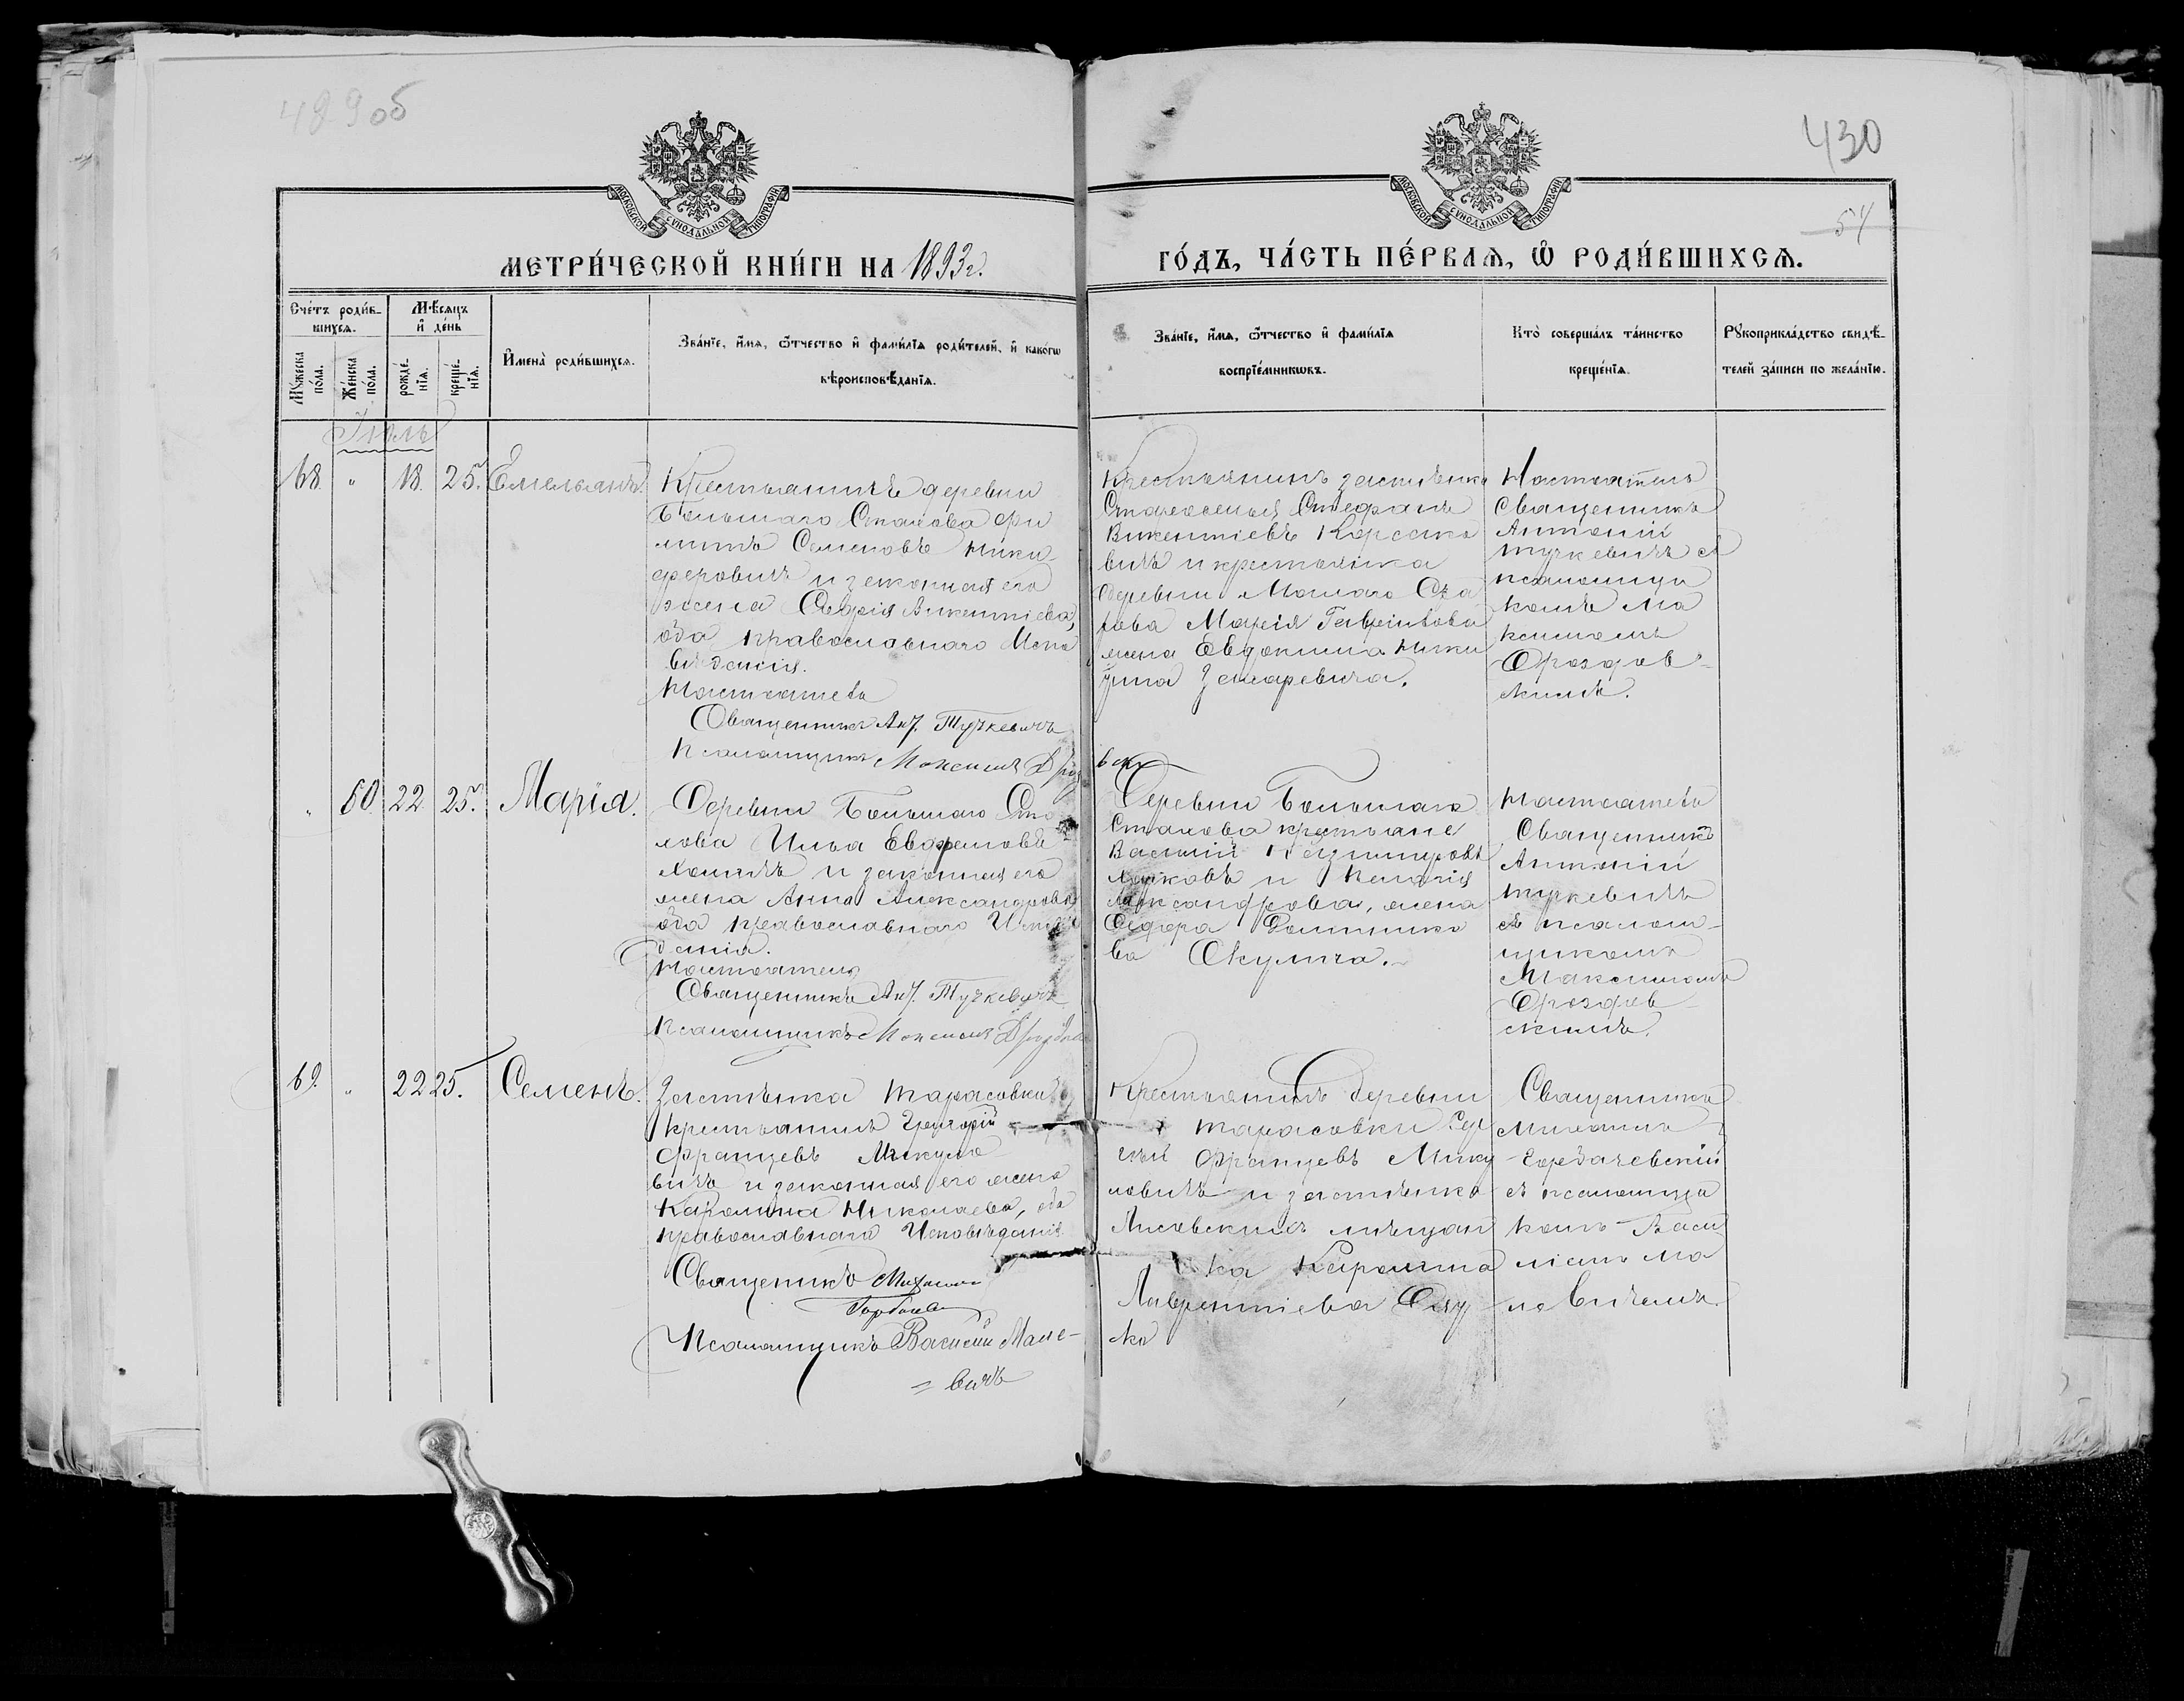 489об
430
54
МОСКОВСКОЙ СѴНОДАЛЬНОЙ ТИПОГРАФІИ
МОСКОВСКОЙ СѴНОДАЛЬНОЙ ТИПОГРАФІИ
МЕТРИ́ЧЕСКОЙ КНИ́ГИ НА 1893 г.
ГО́ДЪ, ЧА́СТЬ ПЕ́РВАѦ, Ѽ РОДИ́ВШИХСѦ.
Сче́тъ роди́в-
шихсѧ.
Мѣ́сѧцъ
и҆ де́нь
Мꙋ́жеска
по́ла.
Же́нска
по́ла.
рожде́-
нїѧ.
креще́-
нїѧ.
И҆мена̀ роди́вшихсѧ.
Зва́нїе, и҆́мѧ, ѻ҆́тчество и҆ фами́лїѧ роди́телей, и҆ како́гѡ
вѣроисповѣ́данїѧ.
Зва́нїе, и҆́мѧ, ѻ҆́тчество и҆ фами́лїѧ
воспрїе́мникѡвъ.
Кто̀ соверша́лъ та́инство
креще́нїѧ.
Рꙋкоприкла́дство свидѣ́-
телей за́писи по жела́нїю.
Іюль
68. " 18. 25. Емельянъ.
Крестьянинъ деревни
Большаго Стахова Фи
липпъ Семеновъ Ники
форовичъ и законная его
жена Софія Викентіева,
оба православнаго Испо
вѣданія.
Настоятель
Священникъ Ант. Тучкевичъ
Псаломщикъ Максимъ Дроздовскі
Крестьянинъ застѣнка
Сторожея Стефанъ
Викентіевъ
вичъ и крестьянка
деревни Малаго Ста
хова Марія Гавріилова
жена Евдокима Ники
Захаревича.
Настоятель
Священникъ
Антоній
Тучкевичъ съ
псаломщи
комъ Ма
ксимомъ
Дроздов-
скимъ.
" 60. 22 25. Марія.
Деревни Большаго Ста
хова Илья Евфимовъ
и законная его
жена Анна Александрова
оба православнаго Исповѣ
данія.
Настоятель
Священникъ Ант. Тучкевичъ
Псаломщикъ Максимъ Дроздов
Деревни Большаго
Стахова крестьяне
Василій Казимировъ
и
Александрова, жена
Федора Доминико
ва Окулича.
Настоятель
Священникъ
Антоній
Тучкевичъ
съ псалом-
щикомъ
Максимомъ
Дроздов-
скимъ.
69. " 22 25. Семенъ.
Застѣнка Тарасовки
крестьянинъ Григорій
Францевъ Микуло
вичъ и законная его жена
Каролина Николаева, оба
православнаго Исповѣданія
Священникъ Михаилъ
Псаломщикъ Василій Мале-
= вичъ
Крестьянинъ деревни
Тарасовки Сер
гѣй Францевъ Мику
ловичъ и застѣнка
мѣщан
ка Каролина
Лаврентіева
Священникъ
Михаилъ
Гордачевскій
съ псаломщи
комъ Васи
ліемъ Ма
левичемъ.